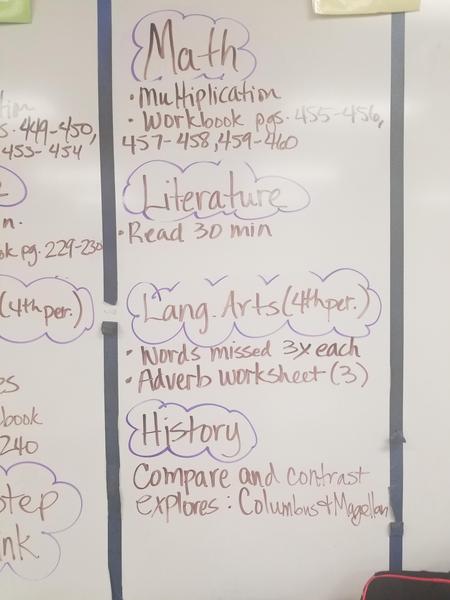 Math
• Multiplication
• Workbook pgs. 455-456,
457-458, 459-460
Literature
• Read 30 min
Lang. Arts (4th per.)
• Words missed 3x each
• Adverb worksheet (3)
History
Compare and contrast
explores: Columbus & Magellan
s. 449-450,
453-454
n.
ok pg. 229-230
(4th per.)
es
book
240
step
ink